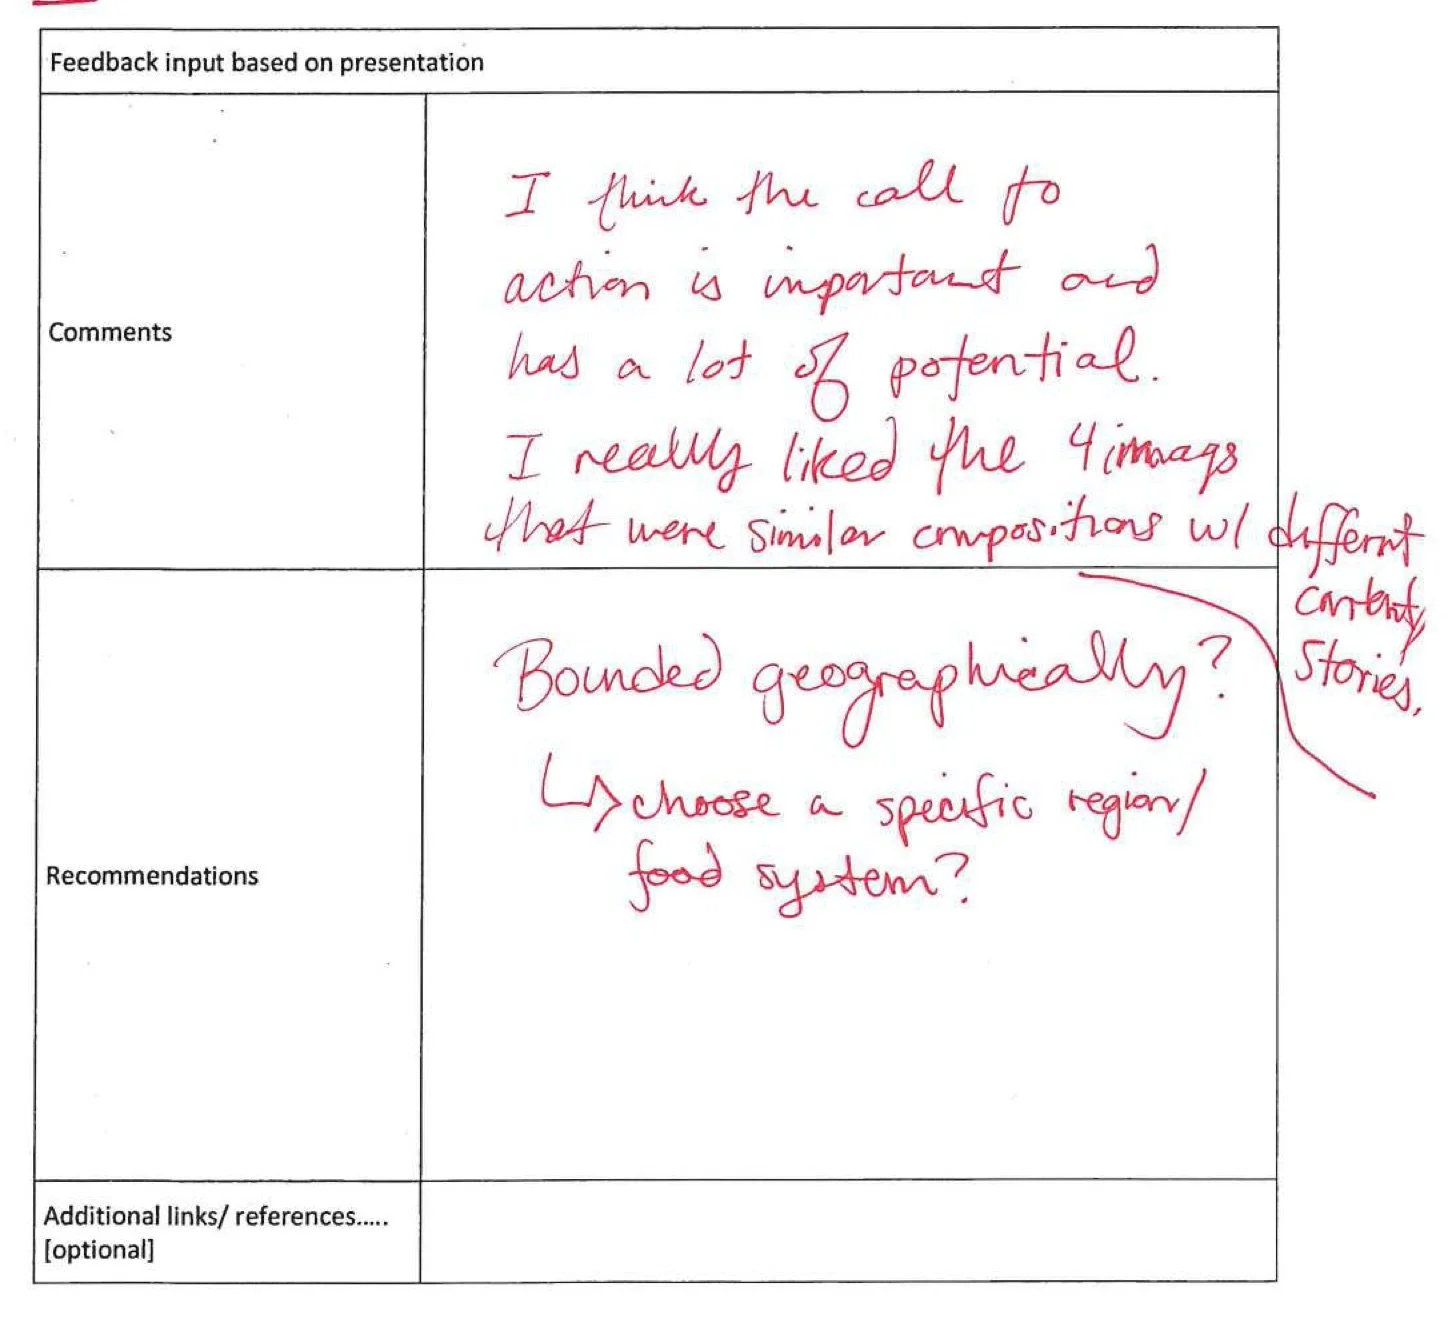 Feedback input based on presentation
Comments
I think the call to
action is important and
has a lot of potential.
I really liked the 4 images
that were similar compositions w/ different
content,
stories.
Recommendations
Bounded geographically?
↳ choose a specific region/
food system?
Additional links/ references.....
[optional]